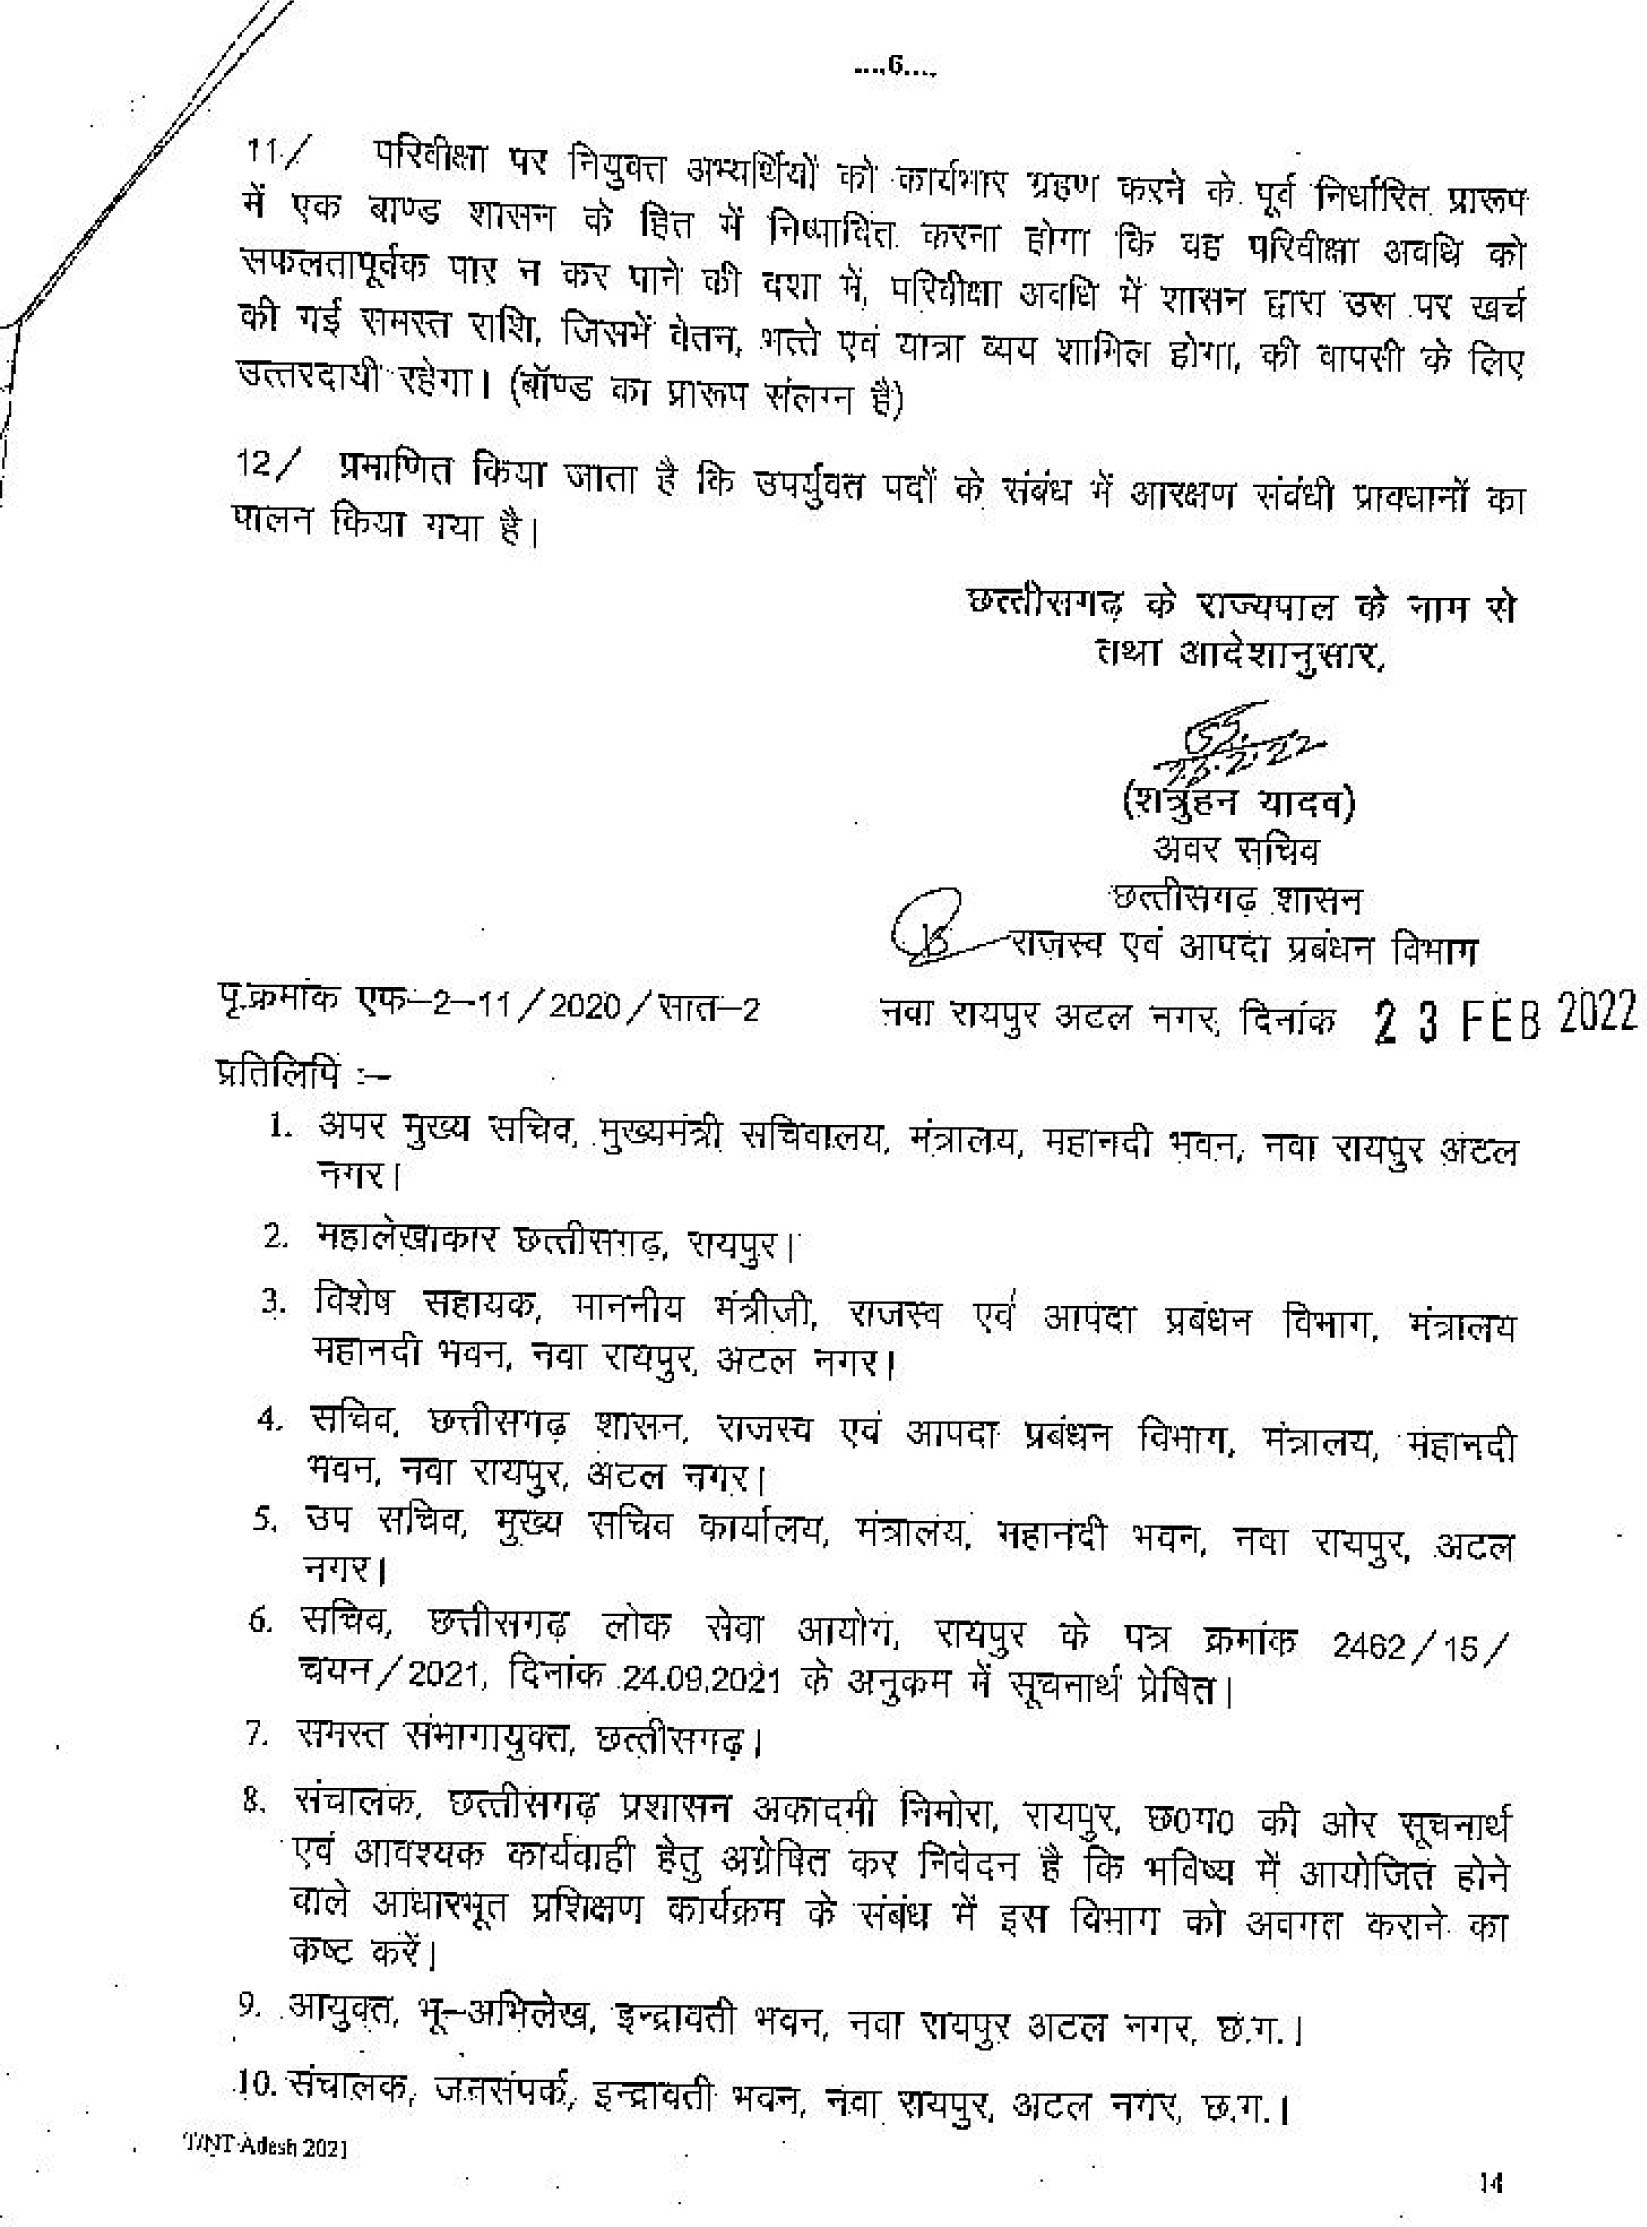 ....6....
11/ परिवीक्षा पर नियुक्त अभ्यर्थियों को कार्यभार ग्रहण करने के पूर्व निर्धारित प्रारूप
में एक बाण्ड शासन के हित में निष्पादित करना होगा कि वह परिवीक्षा अवधि को
सफलतापूर्वक पार न कर पाने की दशा में, परिवीक्षा अवधि में शासन द्वारा उस पर खर्च
की गई समस्त राशि, जिसमें वेतन, भत्ते एवं यात्रा व्यय शामिल होगा, की वापसी के लिए
उत्तरदायी रहेगा। (बॉण्ड का प्रारूप संलग्न है)
12/ प्रमाणित किया जाता है कि उपर्युक्त पदों के संबंध में आरक्षण संबंधी प्रावधानों का
पालन किया गया है।
छत्तीसगढ़ के राज्यपाल के नाम से
तथा आदेशानुसार,
23.2.22
(शत्रुहन यादव)
अवर सचिव
छत्तीसगढ़ शासन
राजस्व एवं आपदा प्रबंधन विभाग
पृ.क्रमांक एफ–2–11/2020/सात–2 नवा रायपुर अटल नगर, दिनांक 23 FEB 2022
प्रतिलिपि :–
1. अपर मुख्य सचिव, मुख्यमंत्री सचिवालय, मंत्रालय, महानदी भवन, नवा रायपुर अटल
नगर।
2. महालेखाकार छत्तीसगढ़, रायपुर।
3. विशेष सहायक, माननीय मंत्रीजी, राजस्व एवं आपदा प्रबंधन विभाग, मंत्रालय
महानदी भवन, नवा रायपुर, अटल नगर।
4. सचिव, छत्तीसगढ़ शासन, राजस्व एवं आपदा प्रबंधन विभाग, मंत्रालय, महानदी
भवन, नवा रायपुर, अटल नगर।
5. उप सचिव, मुख्य सचिव कार्यालय, मंत्रालय, महानदी भवन, नवा रायपुर, अटल
नगर।
6. सचिव, छत्तीसगढ़ लोक सेवा आयोग, रायपुर के पत्र क्रमांक 2462/15/
चयन/2021, दिनांक 24.09.2021 के अनुक्रम में सूचनार्थ प्रेषित।
7. समस्त संभागायुक्त, छत्तीसगढ़।
8. संचालक, छत्तीसगढ़ प्रशासन अकादमी निमोरा, रायपुर, छ0ग0 की ओर सूचनार्थ
एवं आवश्यक कार्यवाही हेतु अग्रेषित कर निवेदन है कि भविष्य में आयोजित होने
वाले आधारभूत प्रशिक्षण कार्यक्रम के संबंध में इस विभाग को अवगत कराने का
कष्ट करें।
9. आयुक्त, भू–अभिलेख, इन्द्रावती भवन, नवा रायपुर अटल नगर, छ.ग.।
10. संचालक, जनसंपर्क, इन्द्रावती भवन, नवा रायपुर, अटल नगर, छ.ग.।
T/NT Adesh 2021
14